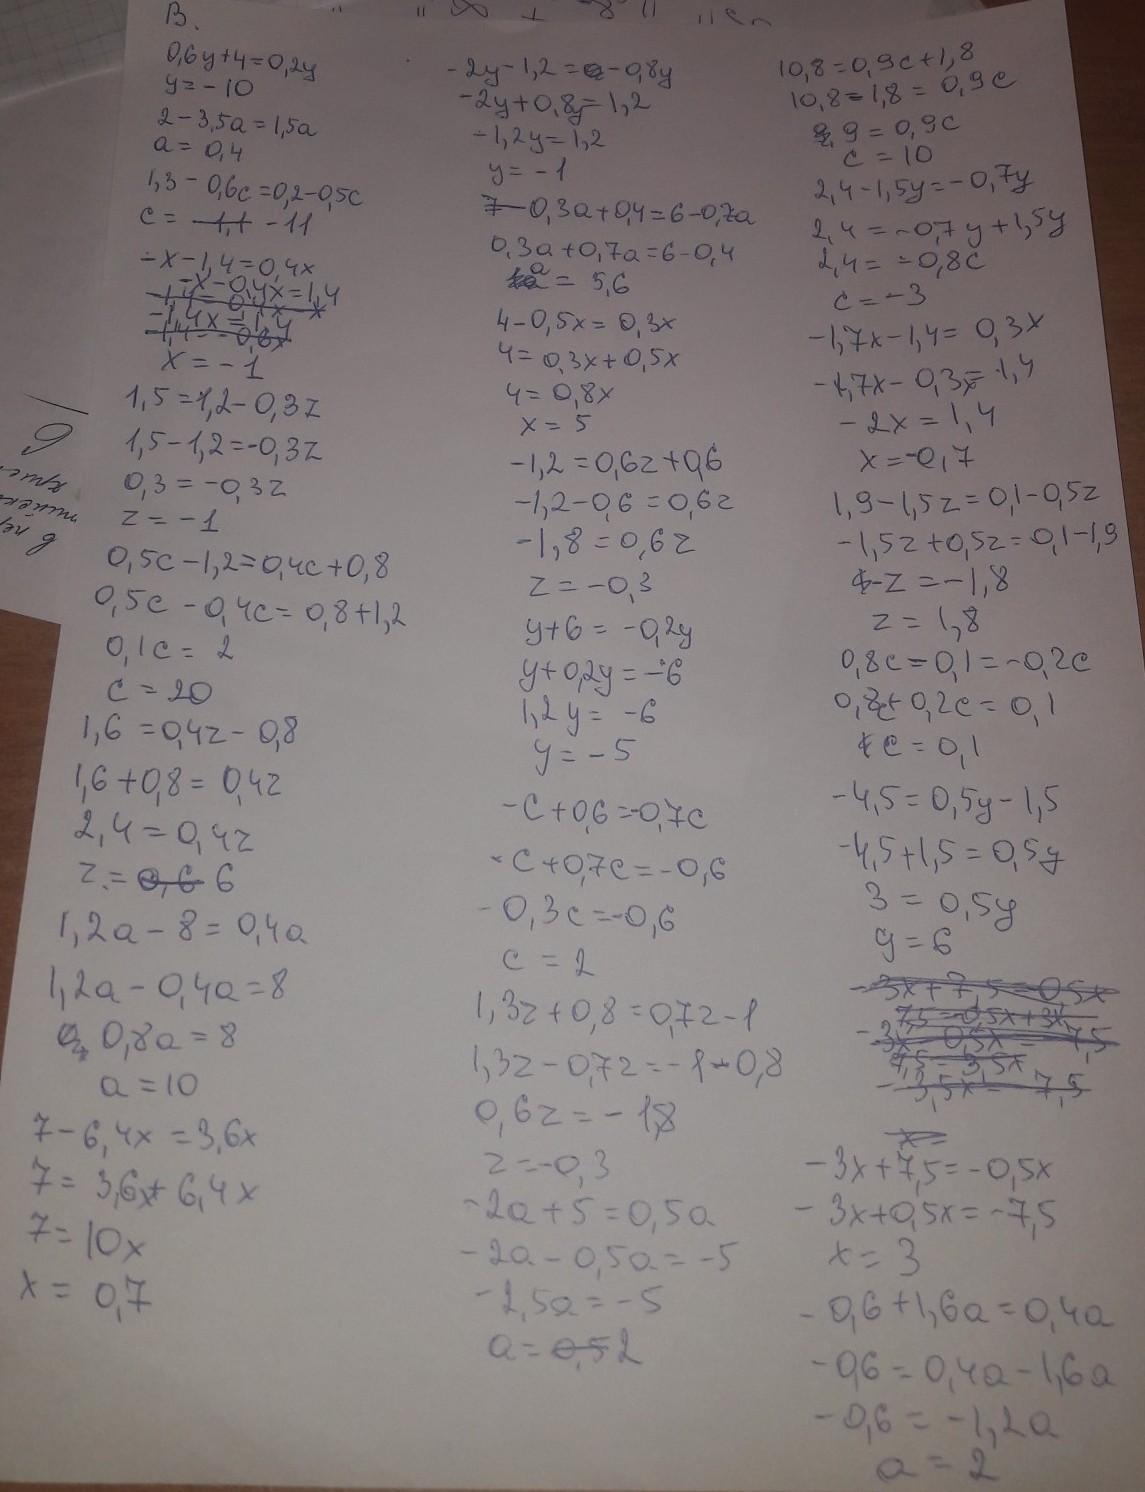 В.
0,6y+4=0,2y
y=-10
2-3,5a=1,5a
a=0,4
1,3-0,6c=0,2-0,5c
c= -1,1 -11
-x-1,4=0,4x
-x-0,4x=1,4
-1,4x=1,4
x=-1
1,5=1,2-0,3z
1,5-1,2=-0,3z
0,3=-0,3z
z=-1
0,5c-1,2=0,4c+0,8
0,5c-0,4c=0,8+1,2
0,1c=2
c=20
1,6=0,4z-0,8
1,6+0,8=0,4z
2,4=0,4z
z=0,6 6
1,2a-8=0,4a
1,2a-0,4a=8
0,8a=8
a=10
7-6,4x=3,6x
7=3,6x+6,4x
7=10x
x=0,7
-2y-1,2=-0,8y
-2y+0,8y=1,2
-1,2y=1,2
y=-1
0,3a+0,4=6-0,7a
0,3a+0,7a=6-0,4
a=5,6
4-0,5x=0,3x
4=0,3x+0,5x
4=0,8x
x=5
-1,2=0,6z+0,6
-1,2-0,6=0,6z
-1,8=0,6z
z=-0,3
y+6=-0,2y
y+0,2y=-6
1,2y=-6
y=-5
-c+0,6=-0,7c
-c+0,7c=-0,6
-0,3c=-0,6
c=2
1,3z+0,8=0,7z-1
1,3z-0,7z=-1-0,8
0,6z=-1,8
z=-0,3
-2a+5=0,5a
-2a-0,5a=-5
-2,5a=-5
a=0,5 2
10,8=0,9c+1,8
10,8-1,8=0,9c
9=0,9c
c=10
2,4-1,5y=-0,7y
2,4=-0,7y+1,5y
2,4=-0,8c
c=-3
-1,7x-1,4=0,3x
-1,7x-0,3x=1,4
-2x=1,4
x=-0,7
1,9-1,5z=0,1-0,5z
-1,5z+0,5z=0,1-1,9
-z=-1,8
z=1,8
0,8c-0,1=-0,2c
0,8c+0,2c=0,1
c=0,1
-4,5=0,5y-1,5
-4,5+1,5=0,5y
3=0,5y
y=6
-3x+7,5=0,5x
7,5=-0,5x+3x
-3x-0,5x=-7,5
-3,5x=-7,5
x=
-3x+7,5=-0,5x
-3x+0,5x=-7,5
x=3
-0,6+1,6a=0,4a
-0,6=0,4a-1,6a
-0,6=-1,2a
a=2